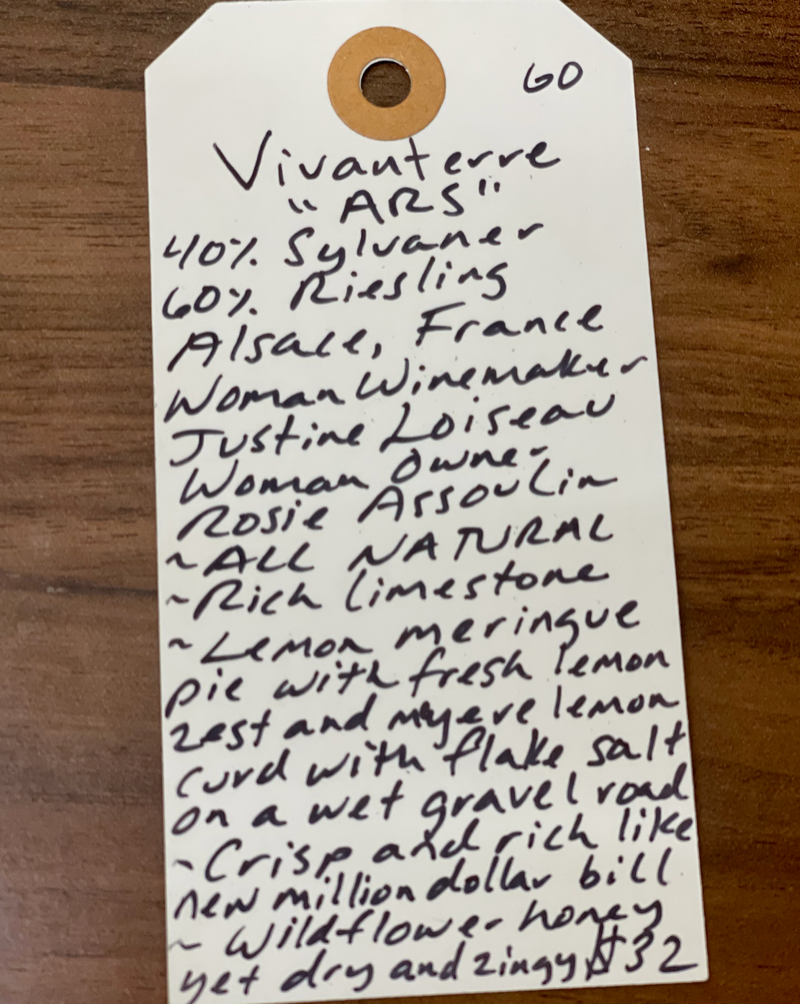 60
Vivanterre
"ARS"
40% Sylvaner
60% Riesling
Alsace, France
Woman Winemaker
Justine Loiseau
Woman Owner
Rosie Assoulin
~ALL NATURAL
~Rich limestone
~Lemon meringue
pie with fresh lemon
zest and myere lemon
curd with flake salt
on a wet gravel road
~Crisp and rich like
new million dollar bill
~ Wildflower honey
yet dry and zingy $32